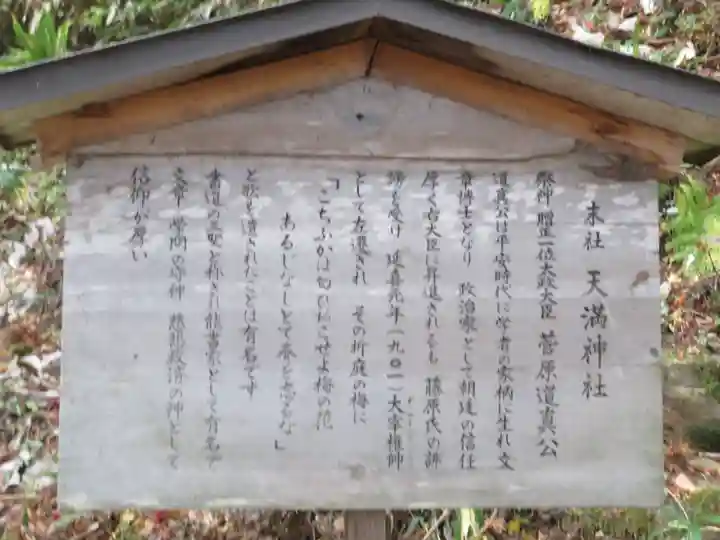 末社 天満神社
祭神 贈正一位太政大臣 菅原道真公
道真公は平安時代に学者の家柄に生れ文
章博士となり 政治家として朝廷の信任
厚く右大臣に昇進されるも 藤原氏の誹
謗を受け 延喜元年(九〇一)大宰権帥
として左遷され その折庭の梅に
「こちふかば匂ひおこせよ梅の花
あるじなしとて春を忘るな」
と歌を遺されたことは有名です
書道の三聖と称され能書家として有名で
文章 学問の守神 慈悲救済の神として
信仰が厚い